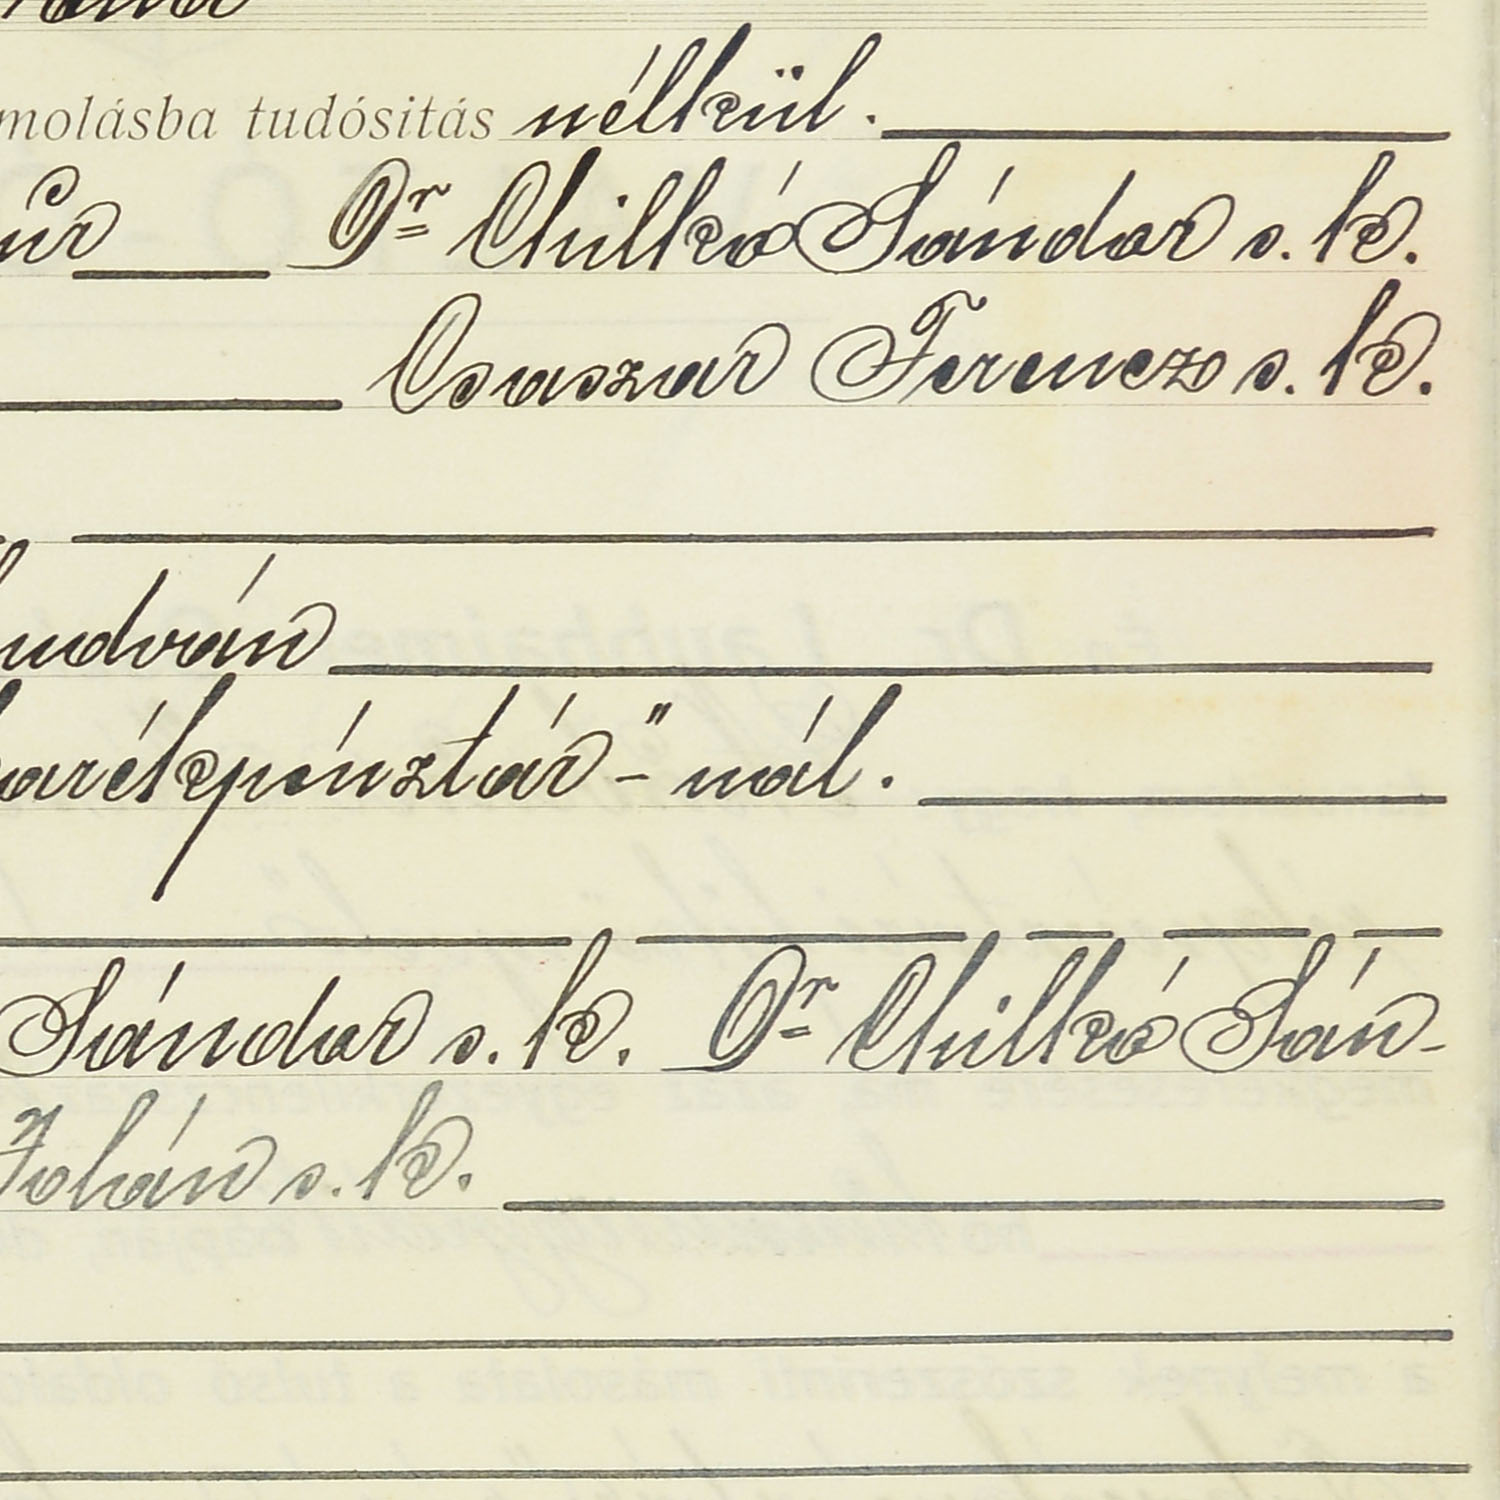 molásba tudósitás nélkül.
úr Dr Chilkó Sándor s. k.
Csaszar Ferencz s. k.
udván
arékpénztár-" nál.
Sándor s. k. Dr Chilkó Sán-
Johán s. k.